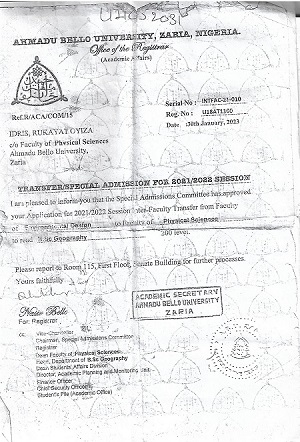 AHMADU BELLO UNIVERSITY, ZARIA, NIGERIA.
Office of the Registrar
(Academic Affairs)
Ref.R/ACA/COM/15
Serial No : INTFAC-21-010
Reg. No : U18AT1100
Date :30th January, 2023
IDRIS, RUKAYAT OYIZA
c/o Faculty of Physical Sciences
Ahmadu Bello University,
Zaria
TRANSFER/SPECIAL ADMISSION FOR 2021/2022 SESSION
I am pleased to inform you that the Special Admissions Committee has approved
your Application for 2021/2022 Session Inter-Faculty Transfer from Faculty
of Environmental Design to Faculty of Physical Sciences
to read B.Sc Geography 200 level.
Please report to Room 115, First Floor, Senate Building for further processes.
Yours faithfully
Bello
For: Registrar
ACADEMIC SECRETARY
AHMADU BELLO UNIVERSITY
ZARIA
cc. Vice-Chancellor
Chairman, Special Admissions Committee
Registrar
Dean Faculty of Physical Sciences
Head, Department of B.Sc Geography
Dean Students Affairs Division
Director, Academic Planning and Monitoring Unit
Finance Officer
Chief Security Officer
Student's File (Academic Office)